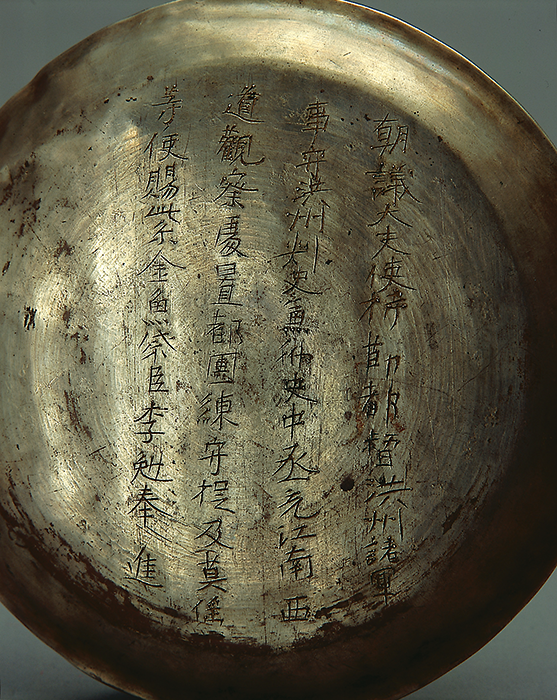 朝議大夫使持節都督洪州諸軍
事守洪州刺史兼御史中丞充江南西
道觀察處置都團練守捉及莫徭
等使賜紫金魚袋臣李勉奉進